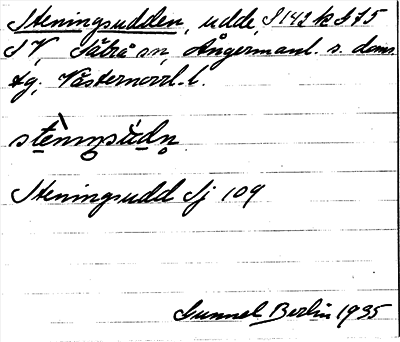 Steningsudden, udde, S 143 k S 75
SV, Säbrå sn, Ångermanl. s. doms.
tg, Västernorrl. l.
Steningsudd Sj 109
Gunnel Berlin 1935